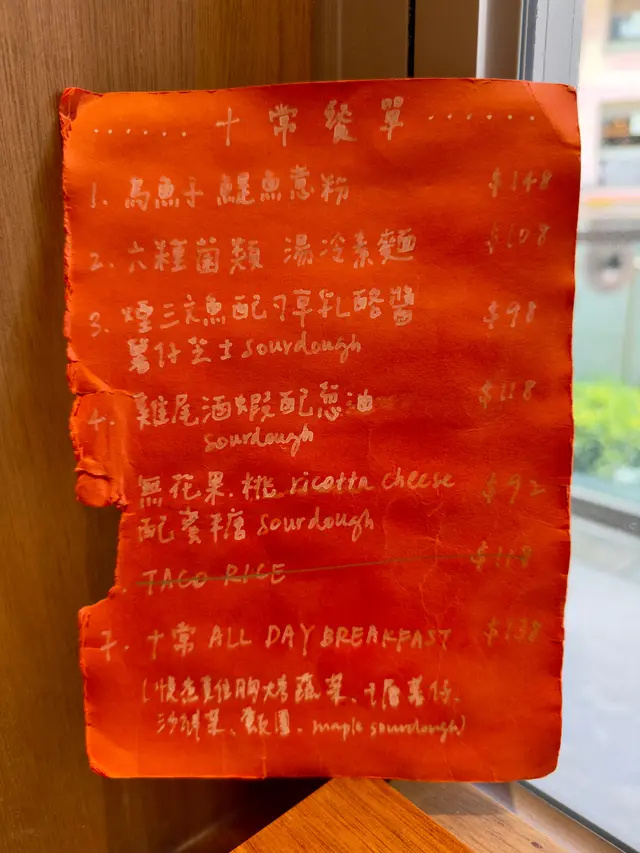 ······ 十常餐單 ······
1. 烏魚子 鯷魚意粉 $148
2. 六種菌類 湯冷素麵 $108
3. 煙三文魚配刁草乳酪醬 $98
薯仔芝士 sourdough
4. 雞尾酒蝦配蔥油 $118
sourdough
無花果.桃 ricotta cheese $92
配蜜糖 sourdough
TACO RICE $118
7. 十常 ALL DAY BREAKFAST $138
(慢煮雞胸、烤蔬菜、薯仔、
沙律菜、 maple sourdough)